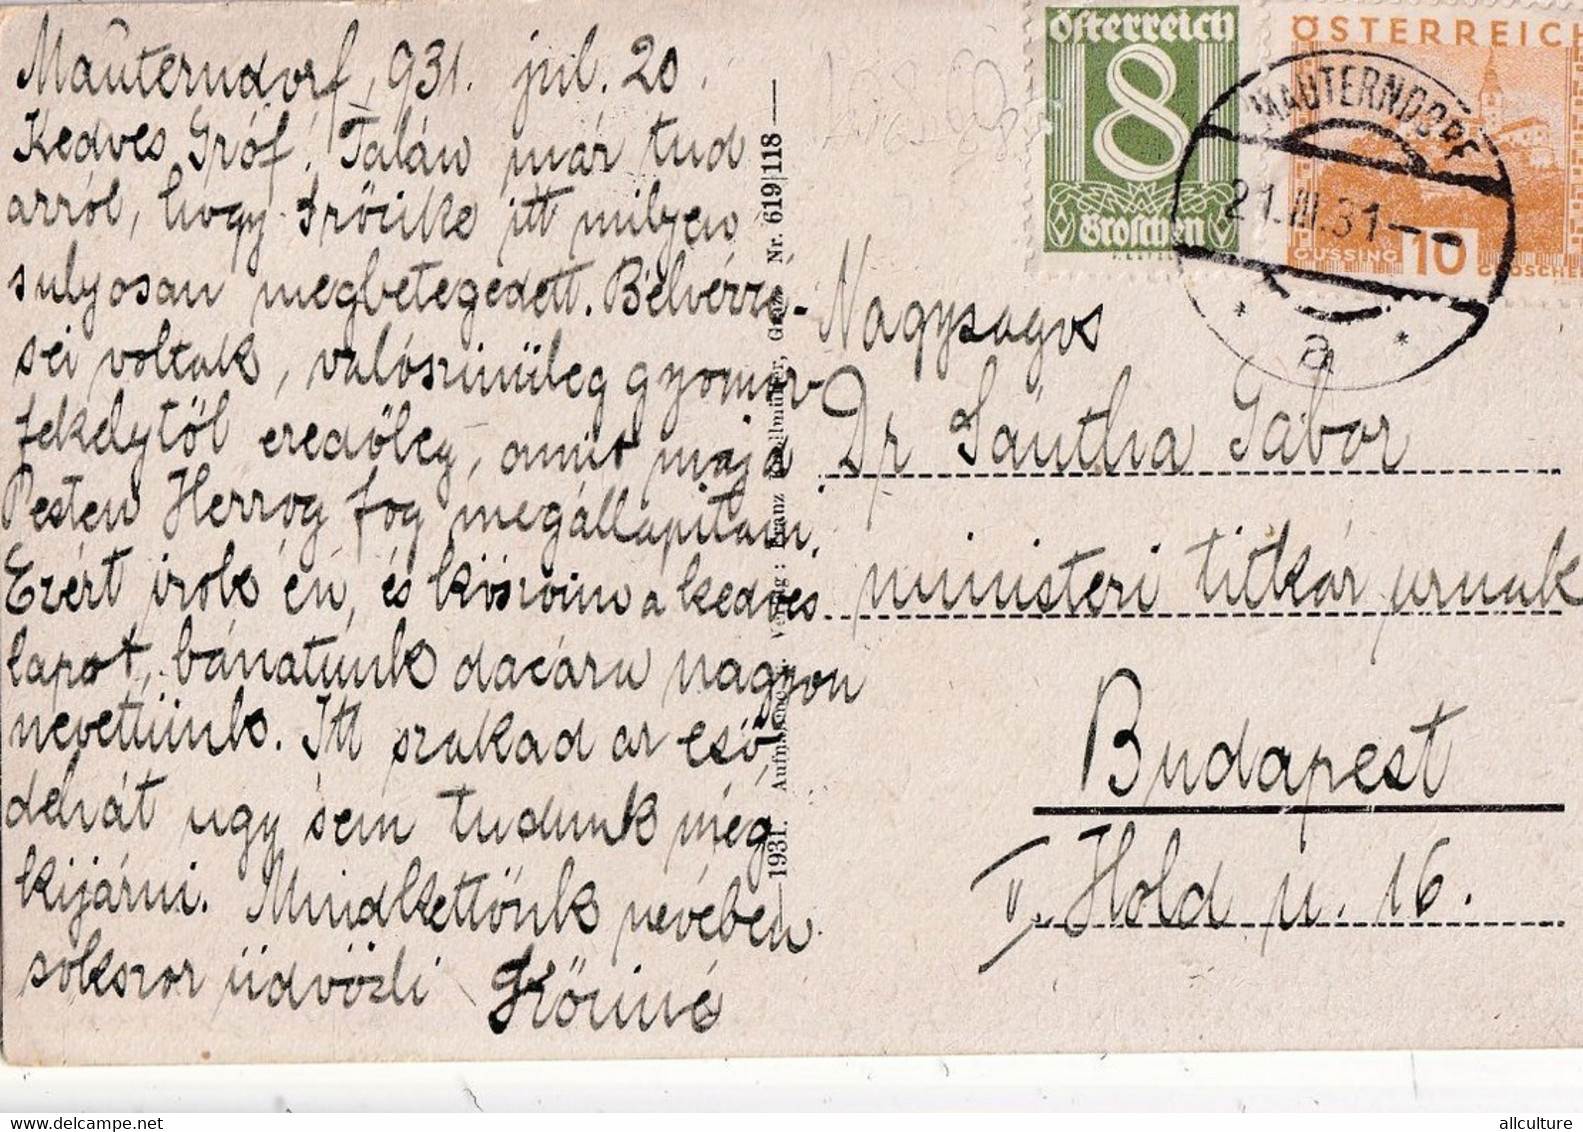 Mauterndorf, 931. júl. 20.
Kedves Gróf! Talán már tud
arról, hogy Fröcike itt milyen
súlyosan megbetegedett. Bélvérzé-
sei voltak, valószinüleg gyomor
fekélytöl eredöleg, amit majd
Pesten Herzog fog megállapitani.
Ezért irok én, és köszönöm a kedves
lapot, bánatunk dacára nagyon
nevettünk. Itt szakad az eső
dehát ugy sem tudunk még
kijárni. Mindkettőnk nevében
sokszor üdvözli
Österreich
8
Groschen
ÖSTERREICH
GÜSSING 10 GROSCHEN
MAUTERNDORF
21.VII.31
a
Nagyságos
Dr Sántha Gábor
ministeri titkár urnak
Budapest
V. Hold u. 16.
1931. Verlag: Franz Nr. 619|118
allculture